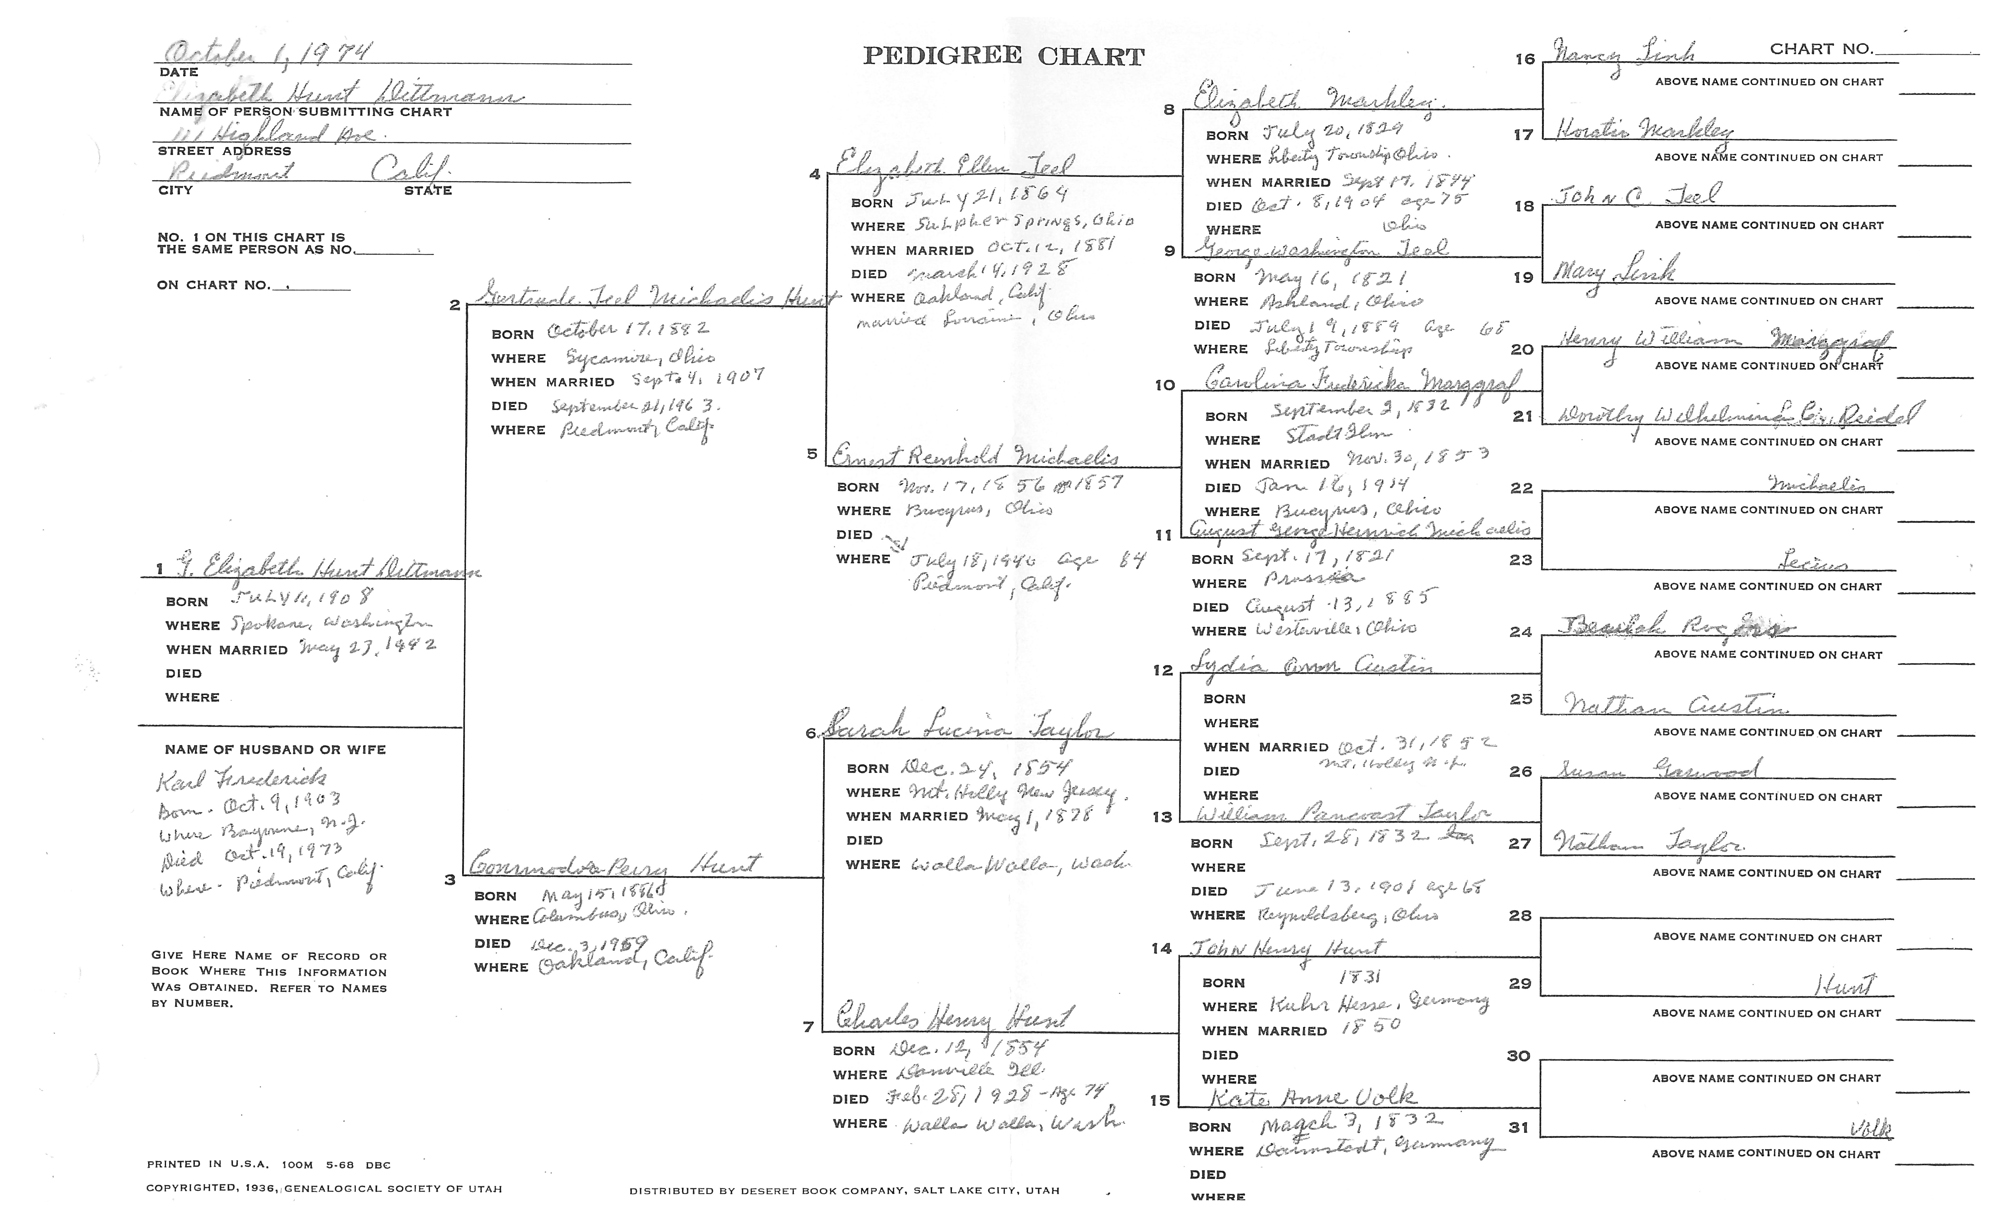 October 1, 1974
DATE
Elizabeth Hunt Dittmann
NAME OF PERSON SUBMITTING CHART
111 Highland Ave.
STREET ADDRESS
Piedmont Calif.
CITY STATE
NO. 1 ON THIS CHART IS
THE SAME PERSON AS NO.
ON CHART NO.
PEDIGREE CHART
CHART NO.
1 G. Elizabeth Hunt Dittmann
BORN July 11, 1908
WHERE Spokane, Washington
WHEN MARRIED May 23, 1942
DIED
WHERE
NAME OF HUSBAND OR WIFE
Karl Frederick
Born - Oct. 9, 1903
Where Bayonne, N.J.
Died Oct. 19, 1973
Where - Piedmont, Calif.
GIVE HERE NAME OF RECORD OR
BOOK WHERE THIS INFORMATION
WAS OBTAINED. REFER TO NAMES
BY NUMBER.
2 Gertrude Teel Michaelis Hunt
BORN October 17, 1882
WHERE Sycamore, Ohio
WHEN MARRIED Sept 4, 1907
DIED September 21, 1963.
WHERE Piedmont, Calif.
3 Commodore Perry Hunt
BORN May 15, 1886
WHERE Columbus, Ohio.
DIED Dec. 3, 1959
WHERE Oakland, Calif.
4 Elizabeth Ellen Teel
BORN July 21, 1864
WHERE Sulpher Springs, Ohio
WHEN MARRIED Oct. 12, 1881
DIED March 14, 1928
WHERE Oakland, Calif.
married Lorraine, Ohio
5 Ernest Reinhold Michaelis
BORN Nov. 17, 1856 or 1857
WHERE Bucyrus, Ohio
DIED
WHERE July 18, 1940 age 84
Piedmont, Calif.
6 Sarah Lucina Taylor
BORN Dec. 24, 1854
WHERE Mt. Holly New Jersey.
WHEN MARRIED May 1, 1878
DIED
WHERE Walla Walla, Wash.
7 Charles Henry Hunt
BORN Dec. 12, 1854
WHERE Danville Ill.
DIED Feb. 28, 1928 - Age 74
WHERE Walla Walla, Wash.
8 Elizabeth Markley.
BORN July 20, 1829
WHERE Liberty Township Ohio.
WHEN MARRIED Sept 17, 1844
DIED Oct. 8, 1904 age 75
WHERE Ohio
9 George Washington Teel
BORN May 16, 1821
WHERE Ashland, Ohio
DIED July 19, 1889 age 68
WHERE Liberty Township
10 Carolina Fredericka Marggraf
BORN September 2, 1832
WHERE Stadt Ilm
WHEN MARRIED Nov. 30, 1853
DIED Jan 16, 1914
WHERE Bucyrus, Ohio
11 August George Heinrich Michaelis
BORN Sept. 17, 1821
WHERE Prussia
DIED August 13, 1885
WHERE Westerville, Ohio
12 Lydia Ann Austin
BORN
WHERE
WHEN MARRIED Oct. 31, 1852
DIED Mt. Holly N.J.
WHERE
13 William Pancoast Taylor
BORN Sept. 28, 1832
WHERE
DIED June 13, 1901 age 68
WHERE Reynoldsberg, Ohio
14 John Henry Hunt
BORN 1831
WHERE Kuhr Hesse, Germany
WHEN MARRIED 1850
DIED
WHERE
15 Kate Anne Volk
BORN March 3, 1832
WHERE Darmstadt, Germany
DIED
WHERE
16 Nancy Link
ABOVE NAME CONTINUED ON CHART
17 Horatio Markley
ABOVE NAME CONTINUED ON CHART
18 John C. Teel
ABOVE NAME CONTINUED ON CHART
19 Mary Link
ABOVE NAME CONTINUED ON CHART
20 Henry William Marggraf
ABOVE NAME CONTINUED ON CHART
21 Dorothy Wilhelmina Reidel
ABOVE NAME CONTINUED ON CHART
22 Michaelis
ABOVE NAME CONTINUED ON CHART
23 Lecius
ABOVE NAME CONTINUED ON CHART
24 Beulah Rogers
ABOVE NAME CONTINUED ON CHART
25 Nathan Austin
ABOVE NAME CONTINUED ON CHART
26 Susan Garwood
ABOVE NAME CONTINUED ON CHART
27 Nathan Taylor
ABOVE NAME CONTINUED ON CHART
28
ABOVE NAME CONTINUED ON CHART
29 Hunt
ABOVE NAME CONTINUED ON CHART
30
ABOVE NAME CONTINUED ON CHART
31 Volk
ABOVE NAME CONTINUED ON CHART
PRINTED IN U.S.A. 100M 5-68 DBC
COPYRIGHTED, 1936, GENEALOGICAL SOCIETY OF UTAH
DISTRIBUTED BY DESERET BOOK COMPANY, SALT LAKE CITY, UTAH